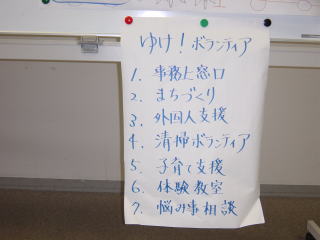 ゆけ！ボランティア
1. 事務と窓口
2. まちづくり
3. 外国人支援
4. 清掃ボランティア
5. 子育て支援
6. 体験教室
7. 悩み事相談